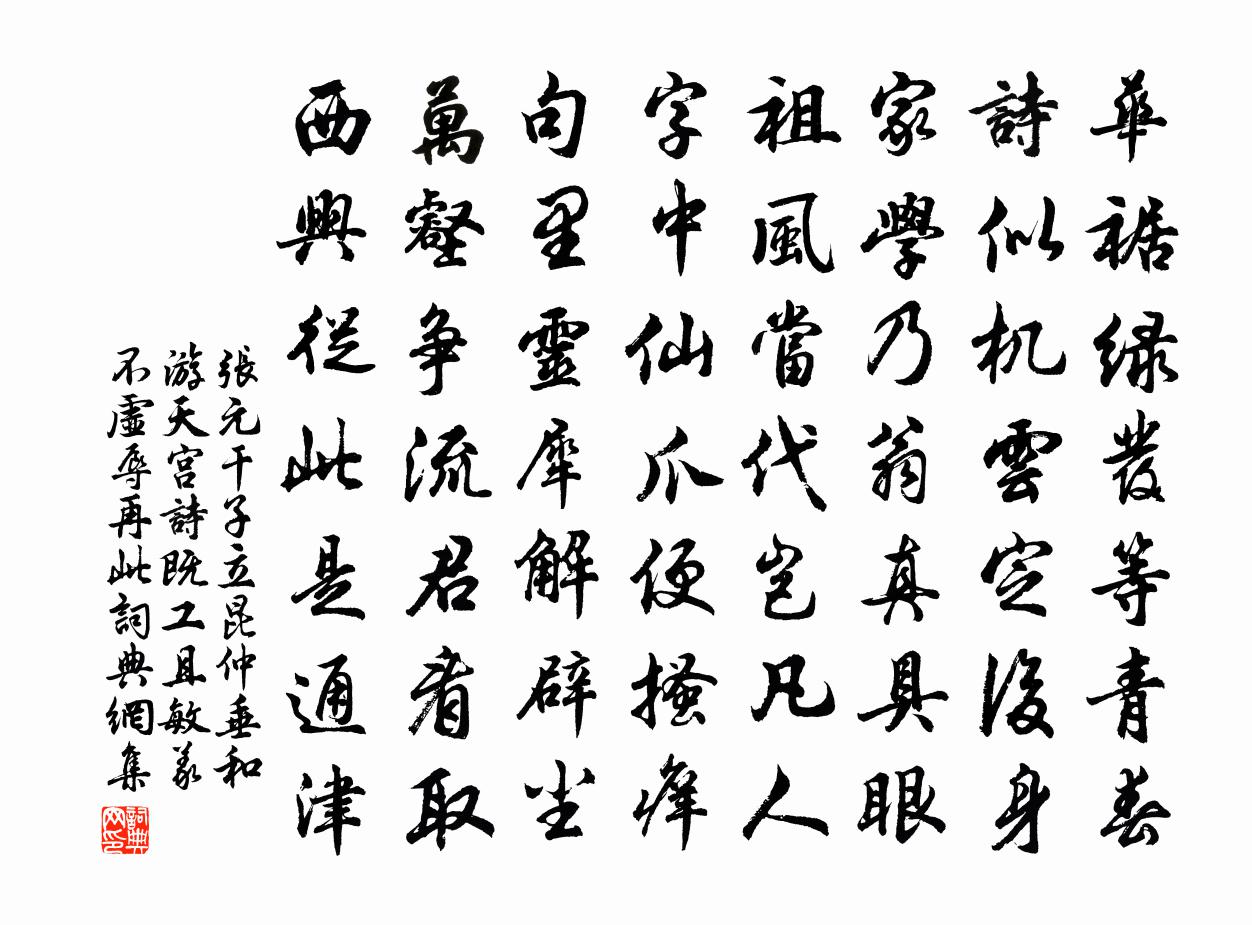 華裾緑發等青春
詩似机雲定後身
家學乃翁真具眼
祖風當代豈凡人
字中仙爪便搔癢
句里靈犀解辟塵
萬壑争流君看取
西興從此是通津
張元干子立昆仲垂和
游天宫詩既工且敏義
不虛辱再此詞典網集
詞典
网印